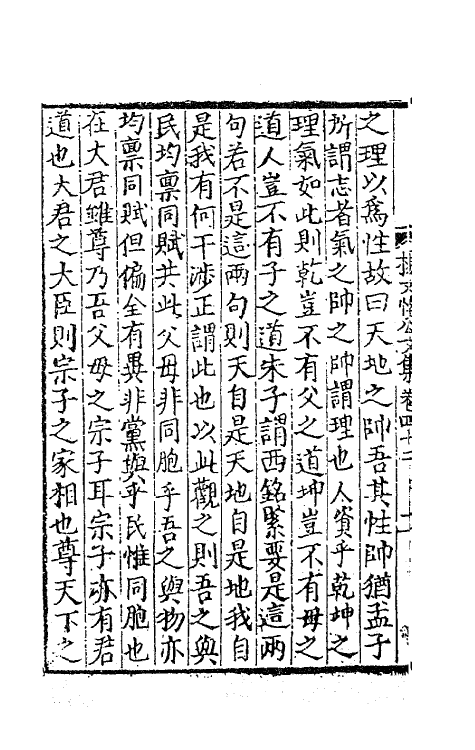 之理以爲性故曰天地之帥吾其性帥猶孟子
所謂志者氣之帥之帥謂理也人資乎乾坤之
理氣如此則乾豈不有父之道坤豈不有母之
道人豈不有子之道朱子謂西銘緊要是這兩
句若不是這兩句則天自是天地自是地我自
是我有何干涉正謂此也以此觀之則吾之與
民均稟同賦共此父母非同胞乎吾之與物亦
均稟同賦但偏全有異非黨與乎民惟同胞也
在大君雖尊乃吾父母之宗子耳宗子亦有君
道也大君之大臣則宗子之家相也尊天下之
公文集卷四十二